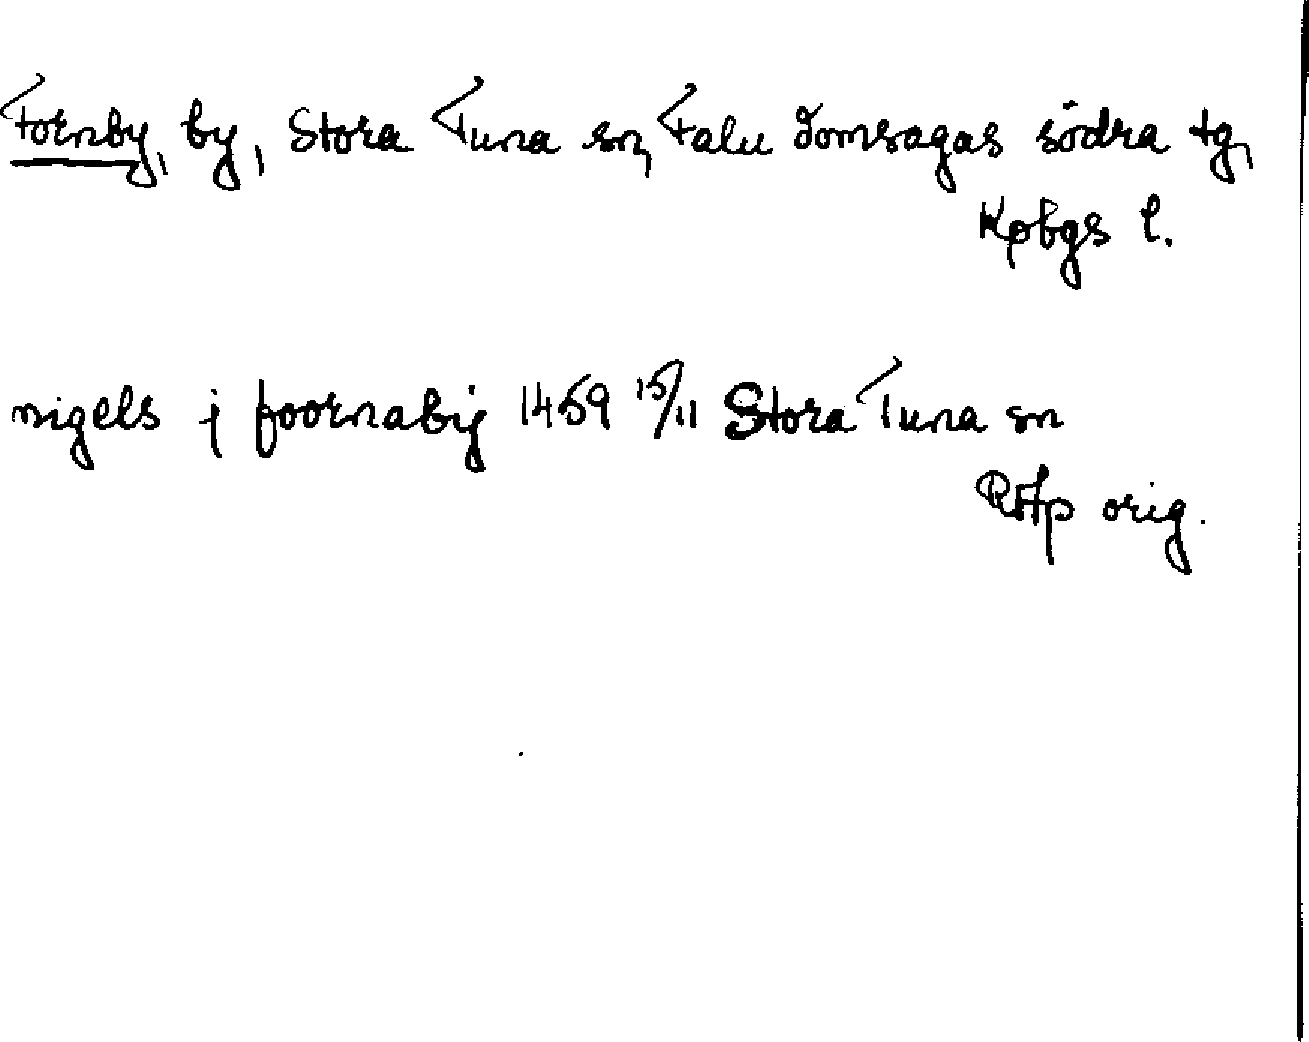 Fornby, by, Stora Tuna sn, Falu domsagas södra tg,
Kpbgs l.
nigels j foornaby 1459 15/11 Stora Tuna sn
RAp orig.